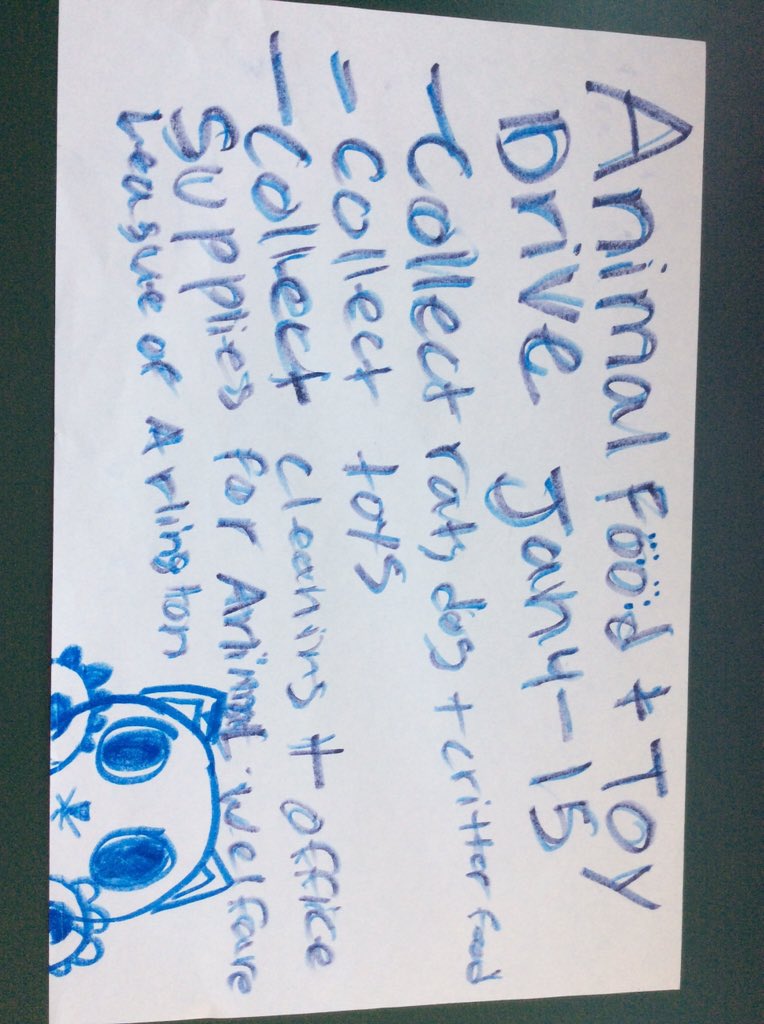 Animal Food + Toy
Drive Jan 4-15
- Collect cat, dog + critter food
- Collect toys
- Collect cleaning + office
Supplies for Animal Welfare
League of Arlington